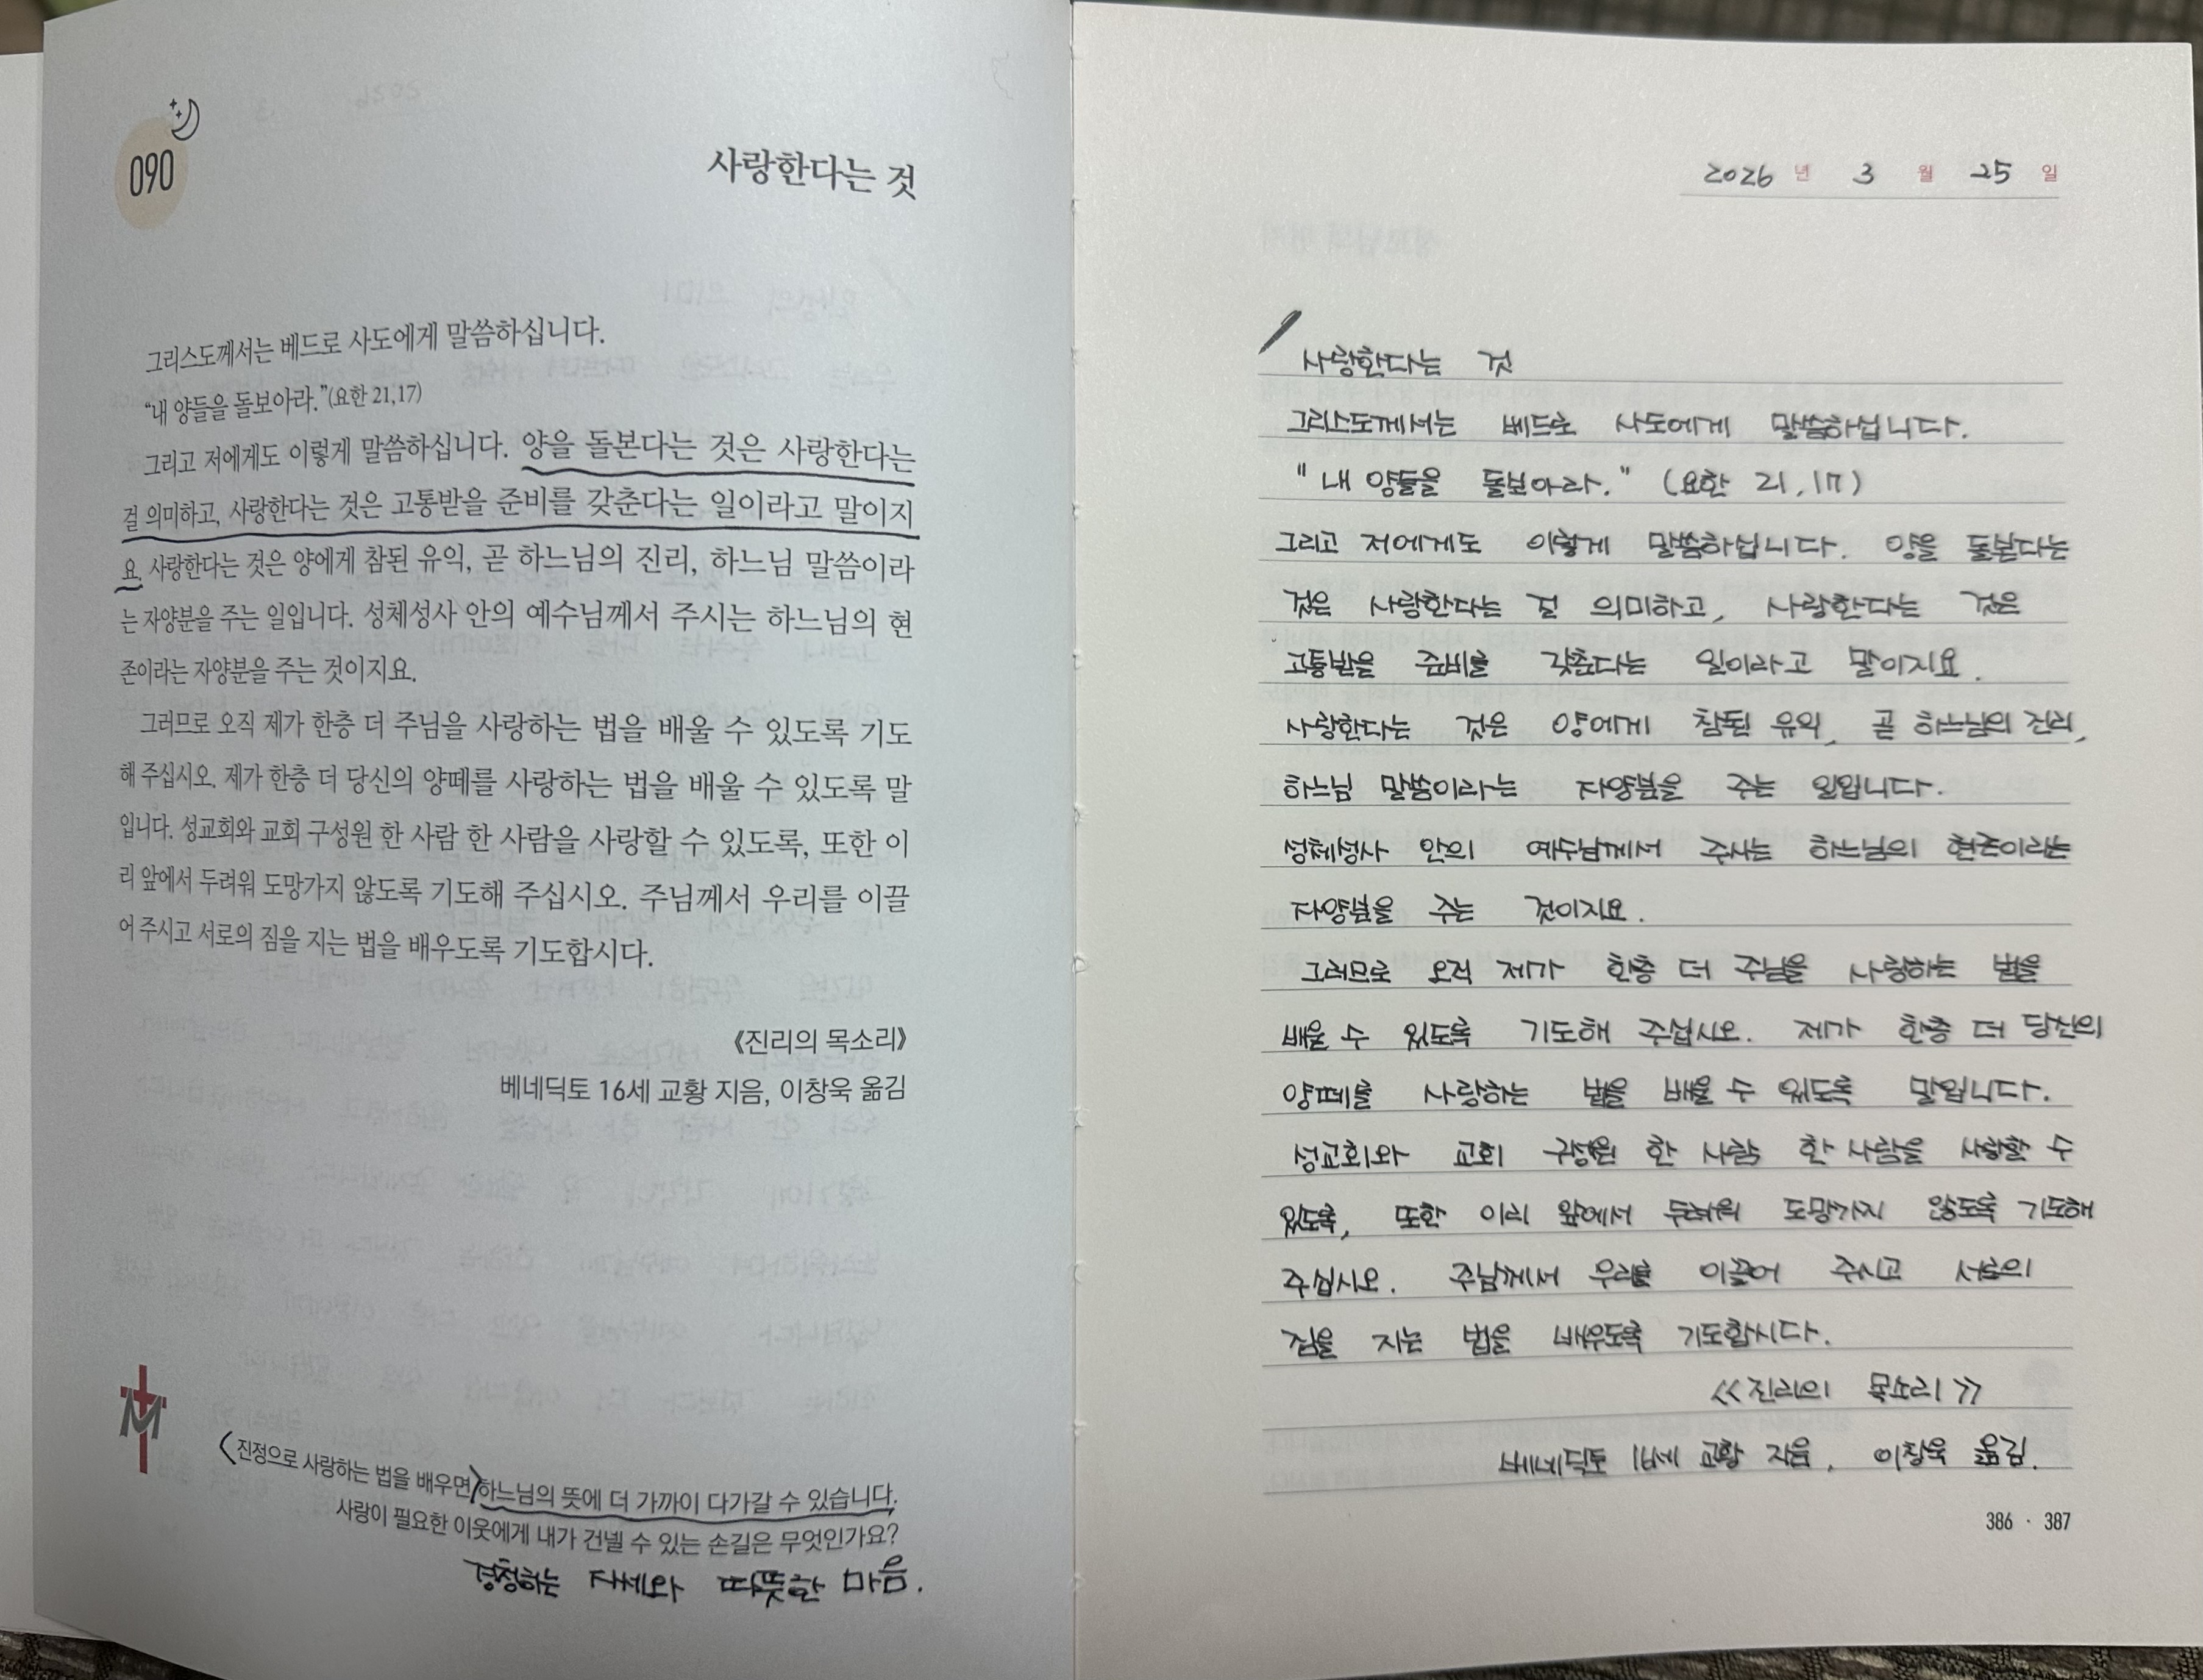 090
사랑한다는 것
그리스도께서는 베드로 사도에게 말씀하십니다.
“내 양들을 돌보아라.”(요한 21,17)
그리고 저에게도 이렇게 말씀하십니다. 양을 돌본다는 것은 사랑한다는
걸 의미하고, 사랑한다는 것은 고통받을 준비를 갖춘다는 일이라고 말이지
요. 사랑한다는 것은 양에게 참된 유익, 곧 하느님의 진리, 하느님 말씀이라
는 자양분을 주는 일입니다. 성체성사 안의 예수님께서 주시는 하느님의 현
존이라는 자양분을 주는 것이지요.
그러므로 오직 제가 한층 더 주님을 사랑하는 법을 배울 수 있도록 기도
해 주십시오. 제가 한층 더 당신의 양떼를 사랑하는 법을 배울 수 있도록 말
입니다. 성교회와 교회 구성원 한 사람 한 사람을 사랑할 수 있도록, 또한 이
리 앞에서 두려워 도망가지 않도록 기도해 주십시오. 주님께서 우리를 이끌
어 주시고 서로의 짐을 지는 법을 배우도록 기도합시다.
《진리의 목소리》
베네딕토 16세 교황 지음, 이창욱 옮김
〈진정으로 사랑하는 법을 배우면〉하느님의 뜻에 더 가까이 다가갈 수 있습니다.
사랑이 필요한 이웃에게 내가 건넬 수 있는 손길은 무엇인가요?
경청하는 자세와 따뜻한 마음.
2026 년 3 월 25 일
사랑한다는 것
그리스도께서는 베드로 사도에게 말씀하십니다.
"내 양들을 돌보아라." (요한 21,17)
그리고 저에게도 이렇게 말씀하십니다. 양을 돌본다는
것은 사랑한다는 걸 의미하고, 사랑한다는 것은
고통받을 준비를 갖춘다는 일이라고 말이지요.
사랑한다는 것은 양에게 참된 유익, 곧 하느님의 진리,
하느님 말씀이라는 자양분을 주는 일입니다.
성체성사 안의 예수님께서 주시는 하느님의 현존이라는
자양분을 주는 것이지요.
그러므로 오직 제가 한층 더 주님을 사랑하는 법을
배울 수 있도록 기도해 주십시오. 제가 한층 더 당신의
양떼를 사랑하는 법을 배울 수 있도록 말입니다.
성교회와 교회 구성원 한 사람 한 사람을 사랑할 수
있도록, 또한 이리 앞에서 두려워 도망가지 않도록 기도해
주십시오. 주님께서 우리를 이끌어 주시고 서로의
짐을 지는 법을 배우도록 기도합시다.
《진리의 목소리》
베네딕토 16세 교황 지음, 이창욱 옮김.
386 · 387